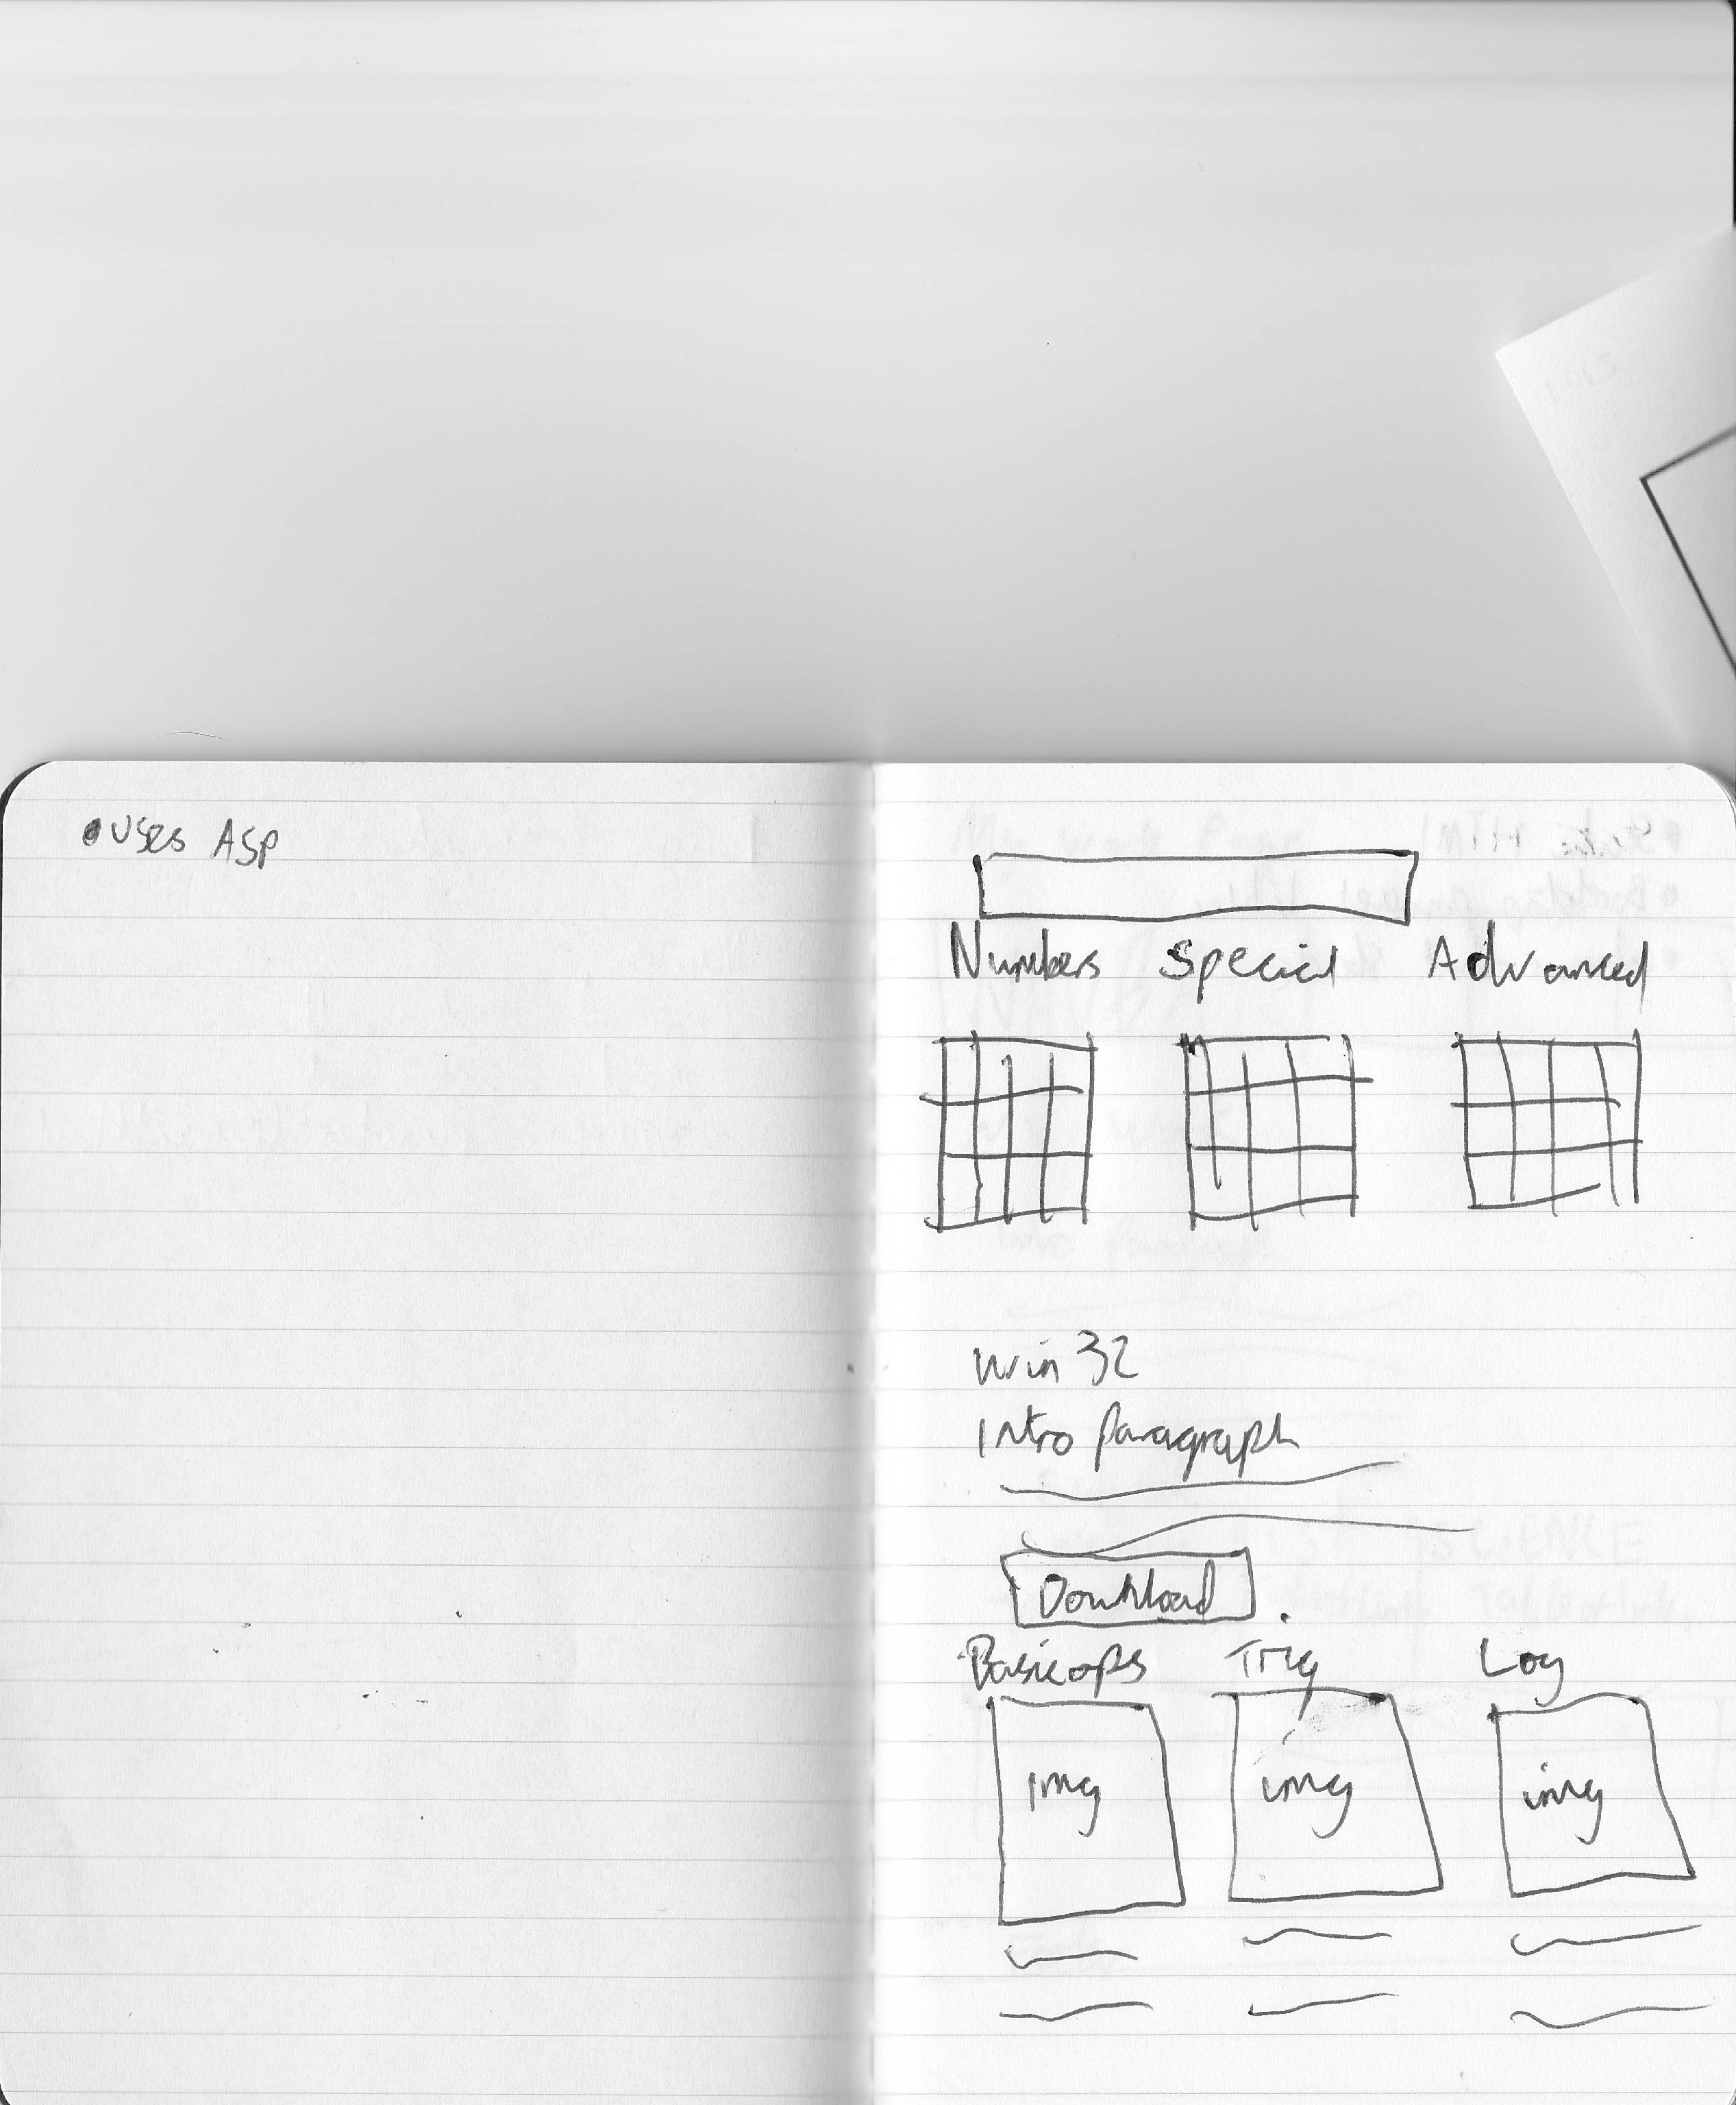 •Uses ASP
Numbers Special Advanced
Win 32
Intro Paragraph
Download
Basic ops Trig Log
img img img